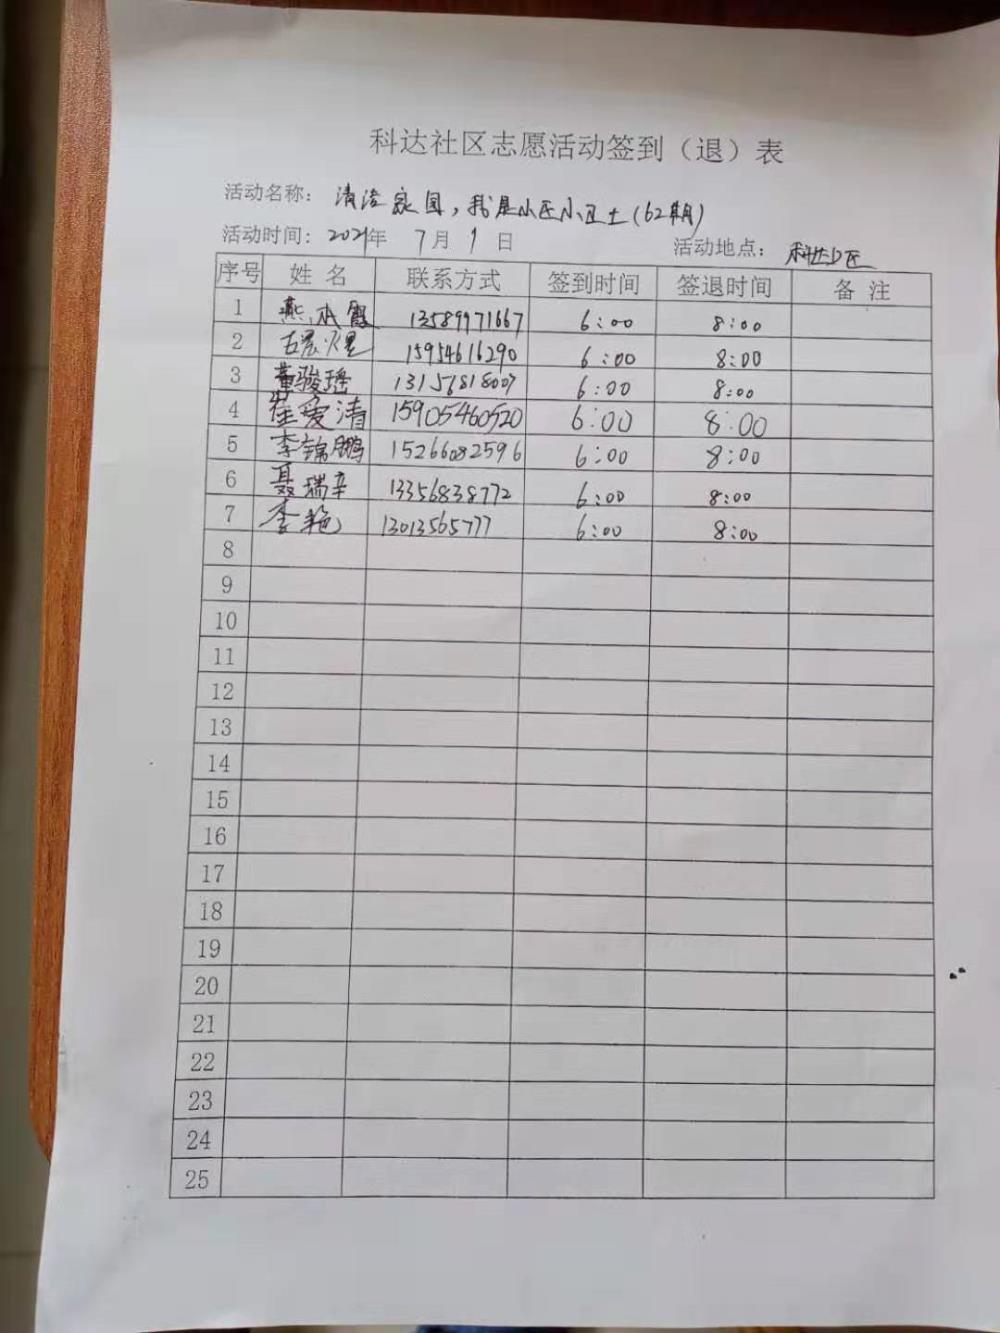 科达社区志愿活动签到（退）表
活动名称： 清洁家园，我是小区小卫士(62期)
活动时间: 2021年 7月 9日 活动地点： 科达小区
序号 姓 名 联系方式 签到时间 签退时间 备 注
1 燕 霞 13589971667 6:00 8:00
2 15954616290 6:00 8:00
3 董骏瑶 13156818007 6:00 8:00
4 崔爱清 15905460520 6:00 8:00
5 李锦鹏 15266082596 6:00 8:00
6 聂瑞辛 13356838772 6:00 8:00
7 李艳 13013565777 6:00 8:00
8
9
10
11
12
13
14
15
16
17
18
19
20
21
22
23
24
25